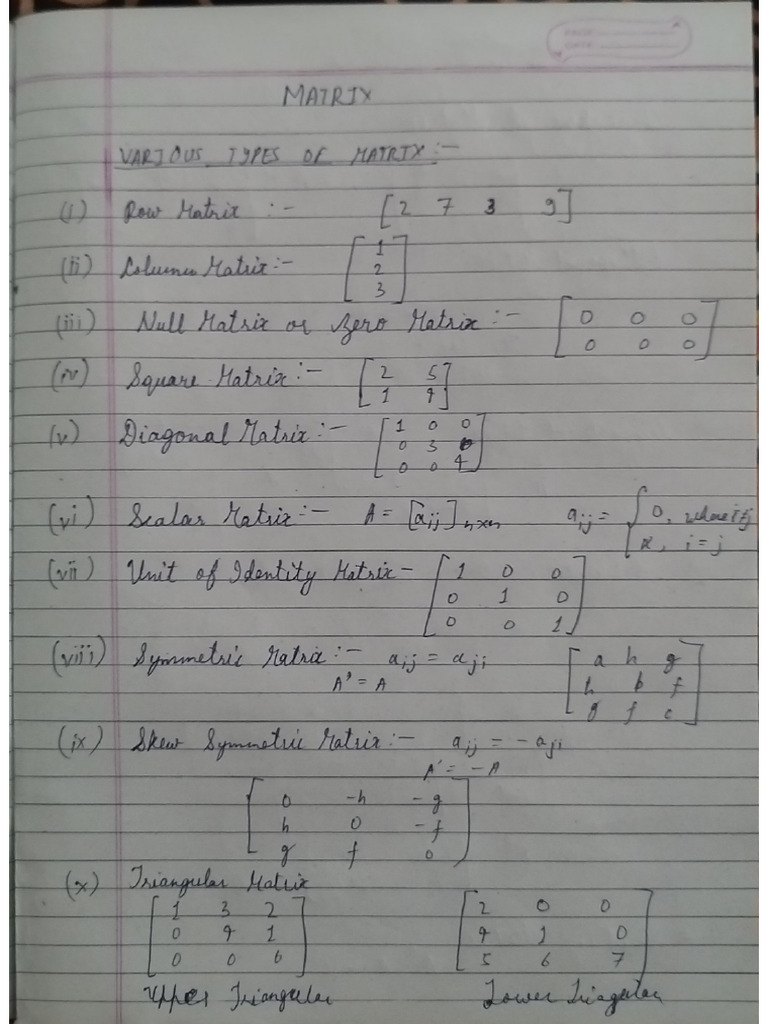 MATRIX
VARIOUS TYPES OF MATRIX :-
(i) Row Matrix :- [2 7 3 9]
(ii) Column Matrix :- [1
2
3]
(iii) Null Matrix or Zero Matrix :- [0 0 0
0 0 0]
(iv) Square Matrix :- [2 5
1 4]
(v) Diagonal Matrix :- [1 0 0
0 3 0
0 0 4]
(vi) Scalar Matrix :- A = [aij]n×n aij = { 0, where i≠j
K, i = j
(vii) Unit of Identity Matrix - [1 0 0
0 1 0
0 0 1]
(viii) Symmetric Matrix :- aij = aji [a h g
A' = A h b f
g f c]
(ix) Skew Symmetric Matrix :- aij = -aji
A' = -A
[0 -h -g
h 0 -f
g f 0]
(x) Triangular Matrix
[1 3 2 [2 0 0
0 4 1 4 1 0
0 0 6] 5 6 7]
Upper Triangular Lower Triagular